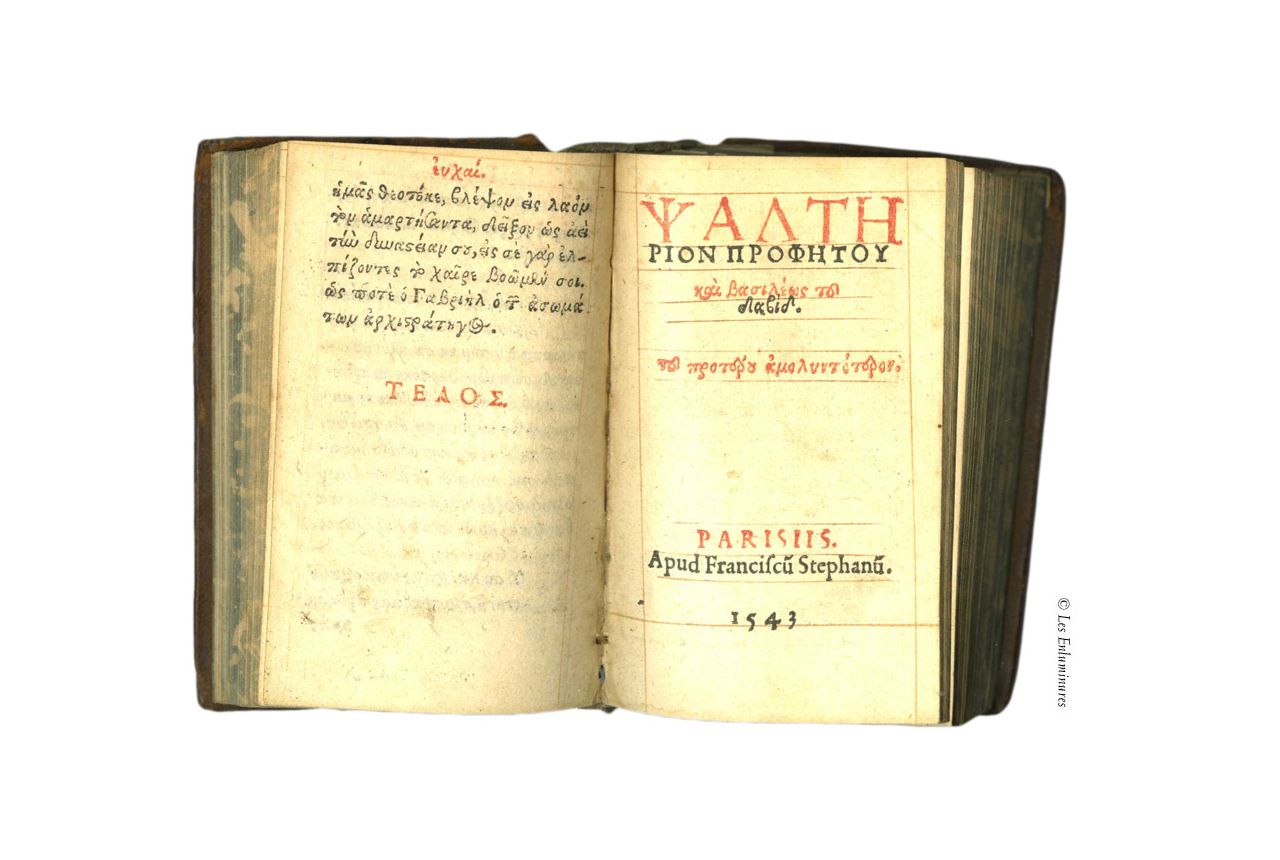 ἐυχαί.
ἡμᾶς θεοτόκε, βλέψον εἰς λαὸν
τὸν ἁμαρτήσαντα, δεῖξον ὡς ἀεὶ
τὴν δυναστείαν σου, εἰς σὲ γαρ ἐλ-
πίζοντες τὸ χαῖρε βοῶμέν σοι.
ὡς ποτὲ ὁ Γαβριὴλ ὁ τ ἀσωμά
των ἀρχιστράτηγος.
ΤΕΛΟΣ
ΨΑΛΤΗ
ΡΙΟΝ ΠΡΟΦΗΤΟΥ
καὶ βασιλέως τοῦ
δαβίδ.
τοῦ προτέρου ἀμολυντότερον.
PARISIIS.
Apud Franciſcũ Stephanũ.
1543
© Les Enluminures